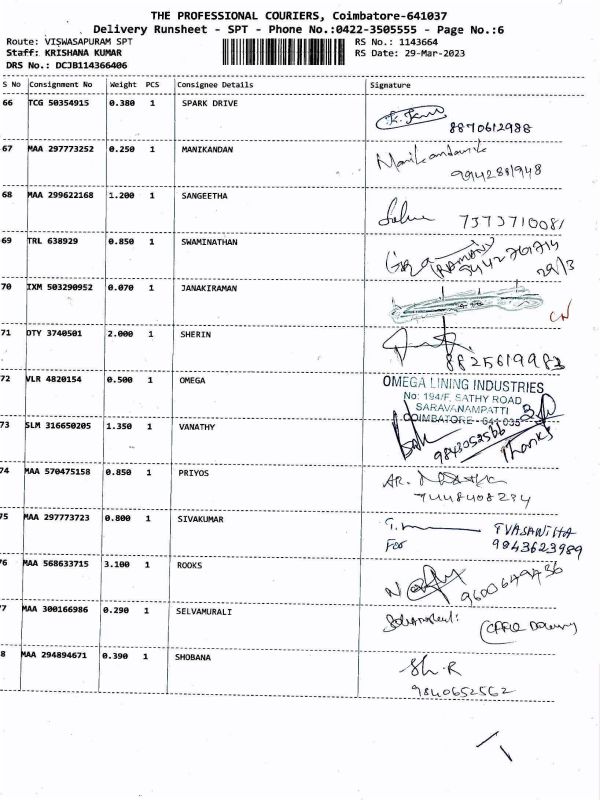 THE PROFESSIONAL COURIERS, Coimbatore-641037
Delivery Runsheet - SPT - Phone No.:0422-3505555 - Page No.:6
Route: VISWASAPURAM SPT
Staff: KRISHANA KUMAR
DRS No.: DCJB114366406
RS No.: 1143664
RS Date: 29-Mar-2023
S No Consignment No Weight PCS Consignee Details Signature
66 TCG 50354915 0.380 1 SPARK DRIVE
8870612988
67 MAA 297773252 0.250 1 MANIKANDAN
9942881948
68 MAA 299622168 1.200 1 SANGEETHA
7373710081
69 TRL 638929 0.850 1 SWAMINATHAN
29/3
70 IXM 503290952 0.070 1 JANAKIRAMAN
71 DTY 3740501 2.000 1 SHERIN
8825619983
72 VLR 4820154 0.500 1 OMEGA
OMEGA LINING INDUSTRIES
No: 194/F, SATHY ROAD
SARAVANAMPATTI
COIMBATORE - 641 035
73 SLM 316650205 1.350 1 VANATHY
9843052566 Thanks
74 MAA 570475158 0.850 1 PRIYOS
AR.
7448408234
75 MAA 297773723 0.800 1 SIVAKUMAR
T VASANTHA
For 9843623989
76 MAA 568633715 3.100 1 ROOKS
9600649436
77 MAA 300166986 0.290 1 SELVAMURALI
8 MAA 294894671 0.390 1 SHOBANA
Sh.R
9840652562